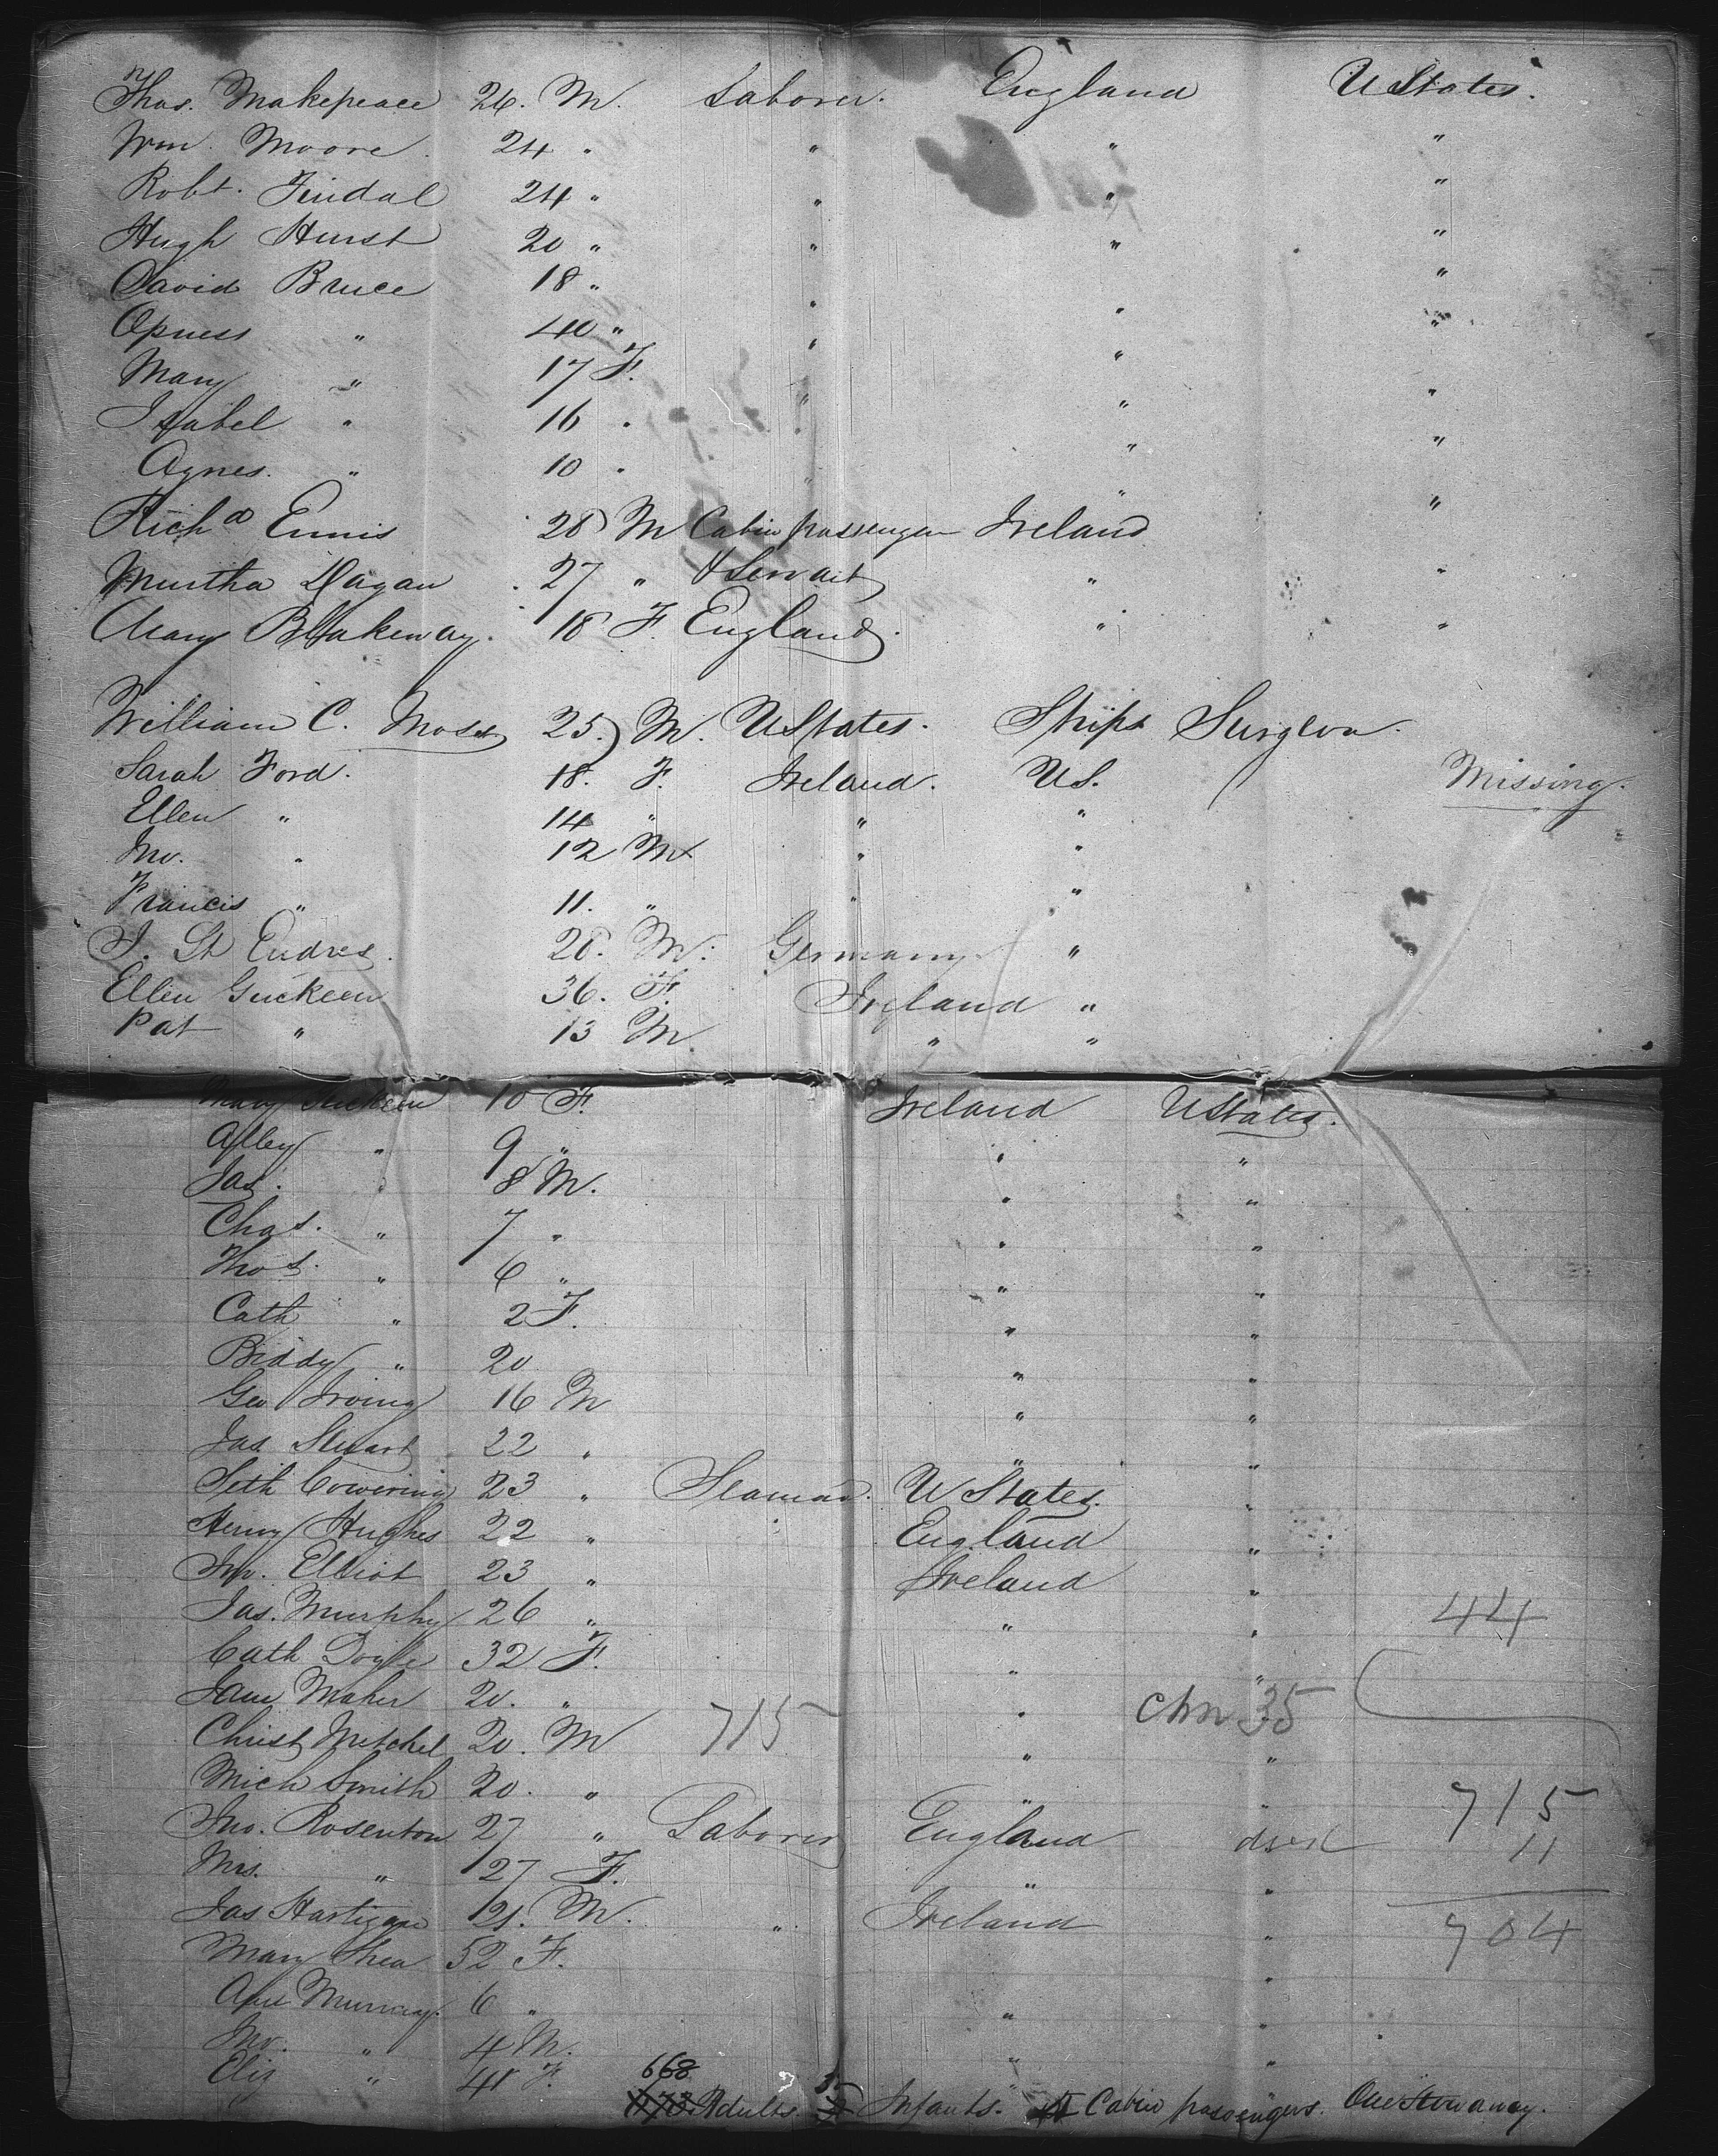 Thos. Makepeace 26. M. Laborer. England UStates.
Wm. Moore 24 " " " "
Robt. Tindal 24 " " " "
Hugh Hurst 20 " " " "
David Bruce 18 " " " "
" 40 " " " "
Mary " 17 F. " " "
Isabel " 16 " " "
Agnes. " 10 " " "
Richd Ennis 28 M Cabin passenger Ireland "
Murtha Hagan 27 " & " "
Mary Blakeway. 18 F. England. " "
William C. Moses 25. M. UStates. Ships Surgeon.
Sarah Ford. 18. F. Ireland. US. Missing.
Ellen " 14 " " "
Jno. " 12 M " "
Francis " 11. " " "
J. St Endres. 28. M. Germany "
Ellen Guckeen 36. F. Ireland "
Pat " 13 M " "
Mary Guckeen 10 F. Ireland UStates.
Alley " 9 " " "
Jas. " 8 M. " "
Chas. " 7 " " "
Thos. " 6 " " "
Cath " 2 F. " "
Biddy " 20 " "
Geo Irving 16 M " "
Jas Stuart 22 " " "
Seth 23 " Seaman. UStates. "
Henry Hughes 22 " England "
Jno. Elliot 23 " Ireland "
Jas. Murphy 26 " " " 44
Cath Doyle 32 F. " "
Jane Maher 20. " 715 " chn 35
Christ Mitchel 20. M " "
Mich Smith 20. " " " 715
Jno. Rosenton 27 " Laborer England died 11
Mrs. " 27 F. " "
Jas Hartigan 21. M. " Ireland " 704
Mary Shea 52 F. "
Ann Murray. 6 " " "
Jno. " 4 M. " "
Eliz " 41 F. 668
Adults. 35 Infants. Cabin passengers. One Stowaway.